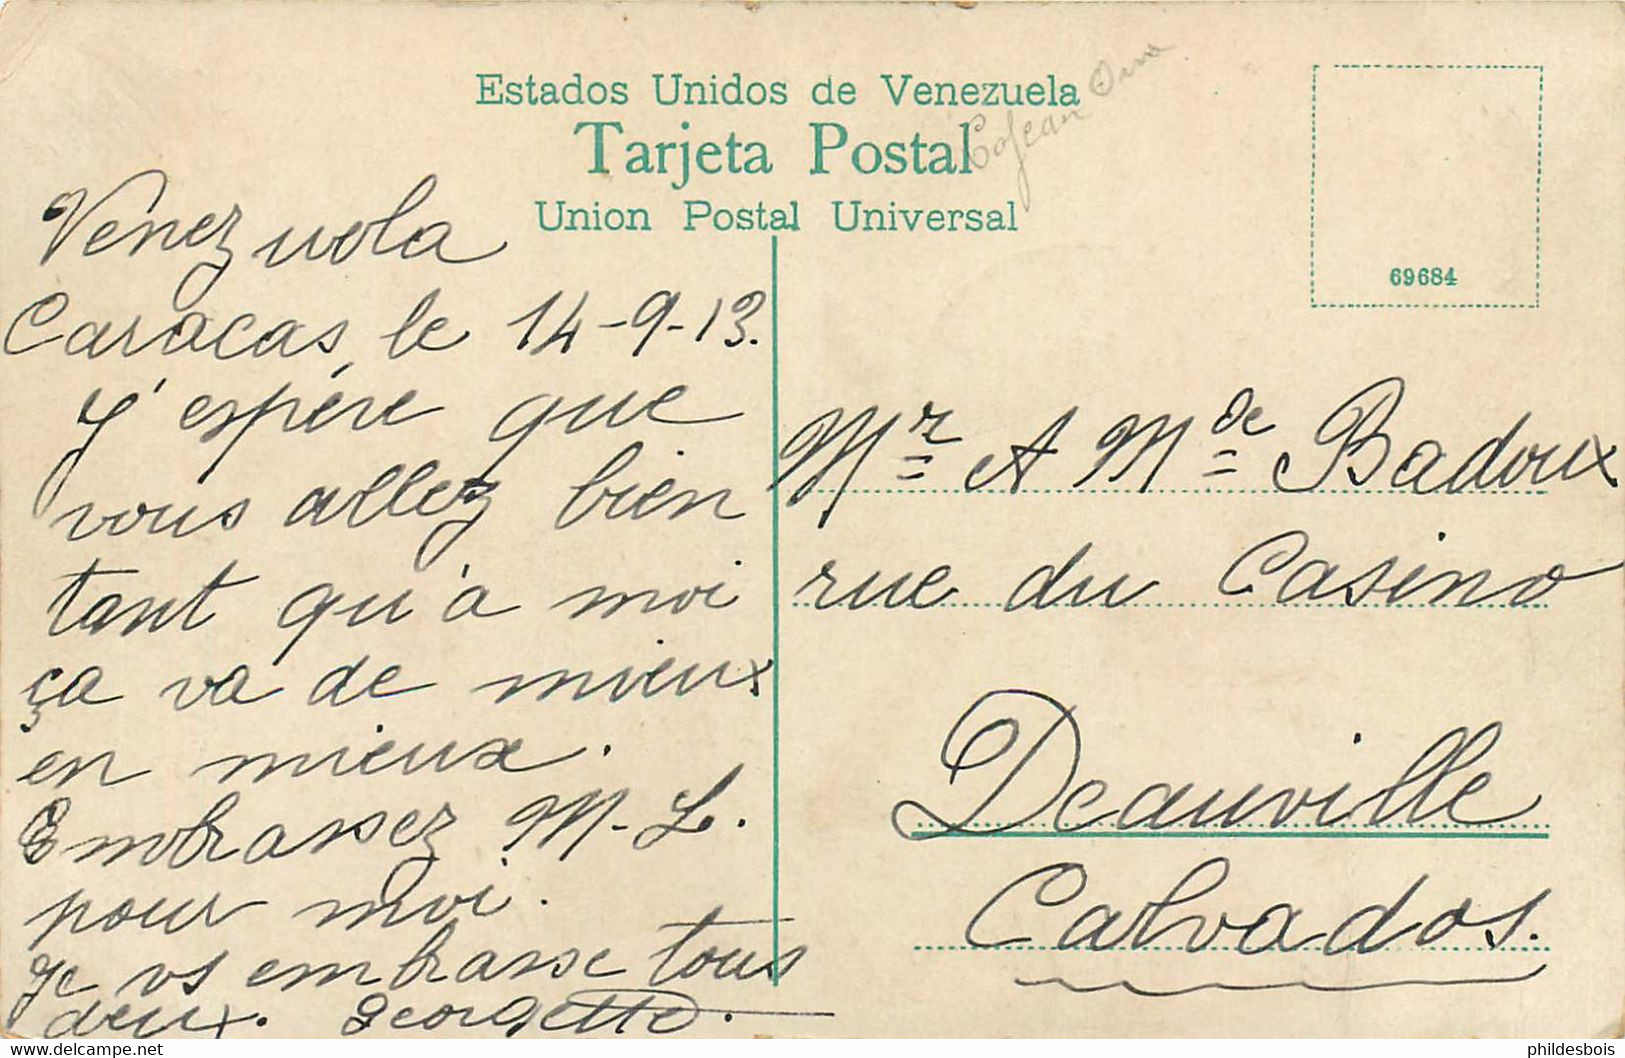 Estados Unidos de Venezuela
Tarjeta Postal
Union Postal Universal
69684
Venezuola
Caracas, le 14-9-13.
J'espére que
vous allez bien
tant qu'à moi
ça va de mieux
en mieux.
Embrassez M.-L.
pour moi.
Je vs embrasse tous
deux. Georgette.
Mr A Mde Badoux
rue du Casino
Deauville
Calvados.
phildesbois